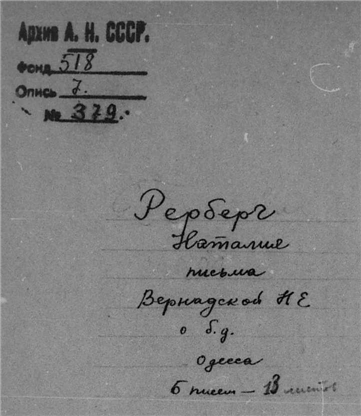 Архив А. Н. СССР.
Фонд 518
Опись 7.
№ 379.
Рерберг
Наталия
письма
Вернадской Н Е
о б.д.
Одесса
6 писем – 13 листов